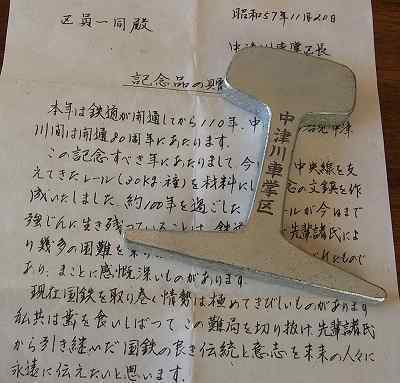 区員一同殿
昭和57年11月20日
中津川車掌区長
記念品の贈
本年は鉄道が開通してから110年、中
川間は開通80周年にあたります。
この記念すべき年にあたりまして、今 中央線を支
えてきたレール(30kg 種)を材料にし の文鎮を作
成いたしました。約100年を過ごした ールが今日まで
強じんに生き残っていることは、鉄道 先輩諸氏によ
り幾多の困難を れたもので
あり、まことに感慨深いものがあります。
現在国鉄を取り巻く情勢は極めてきびしいものがあります
私共は歯を食いしばって この難局を切り抜け、先輩諸氏
から引き継いだ国鉄の良き伝統と意志を未来の人々に
永遠に伝えたいと思います。
中津川車掌区